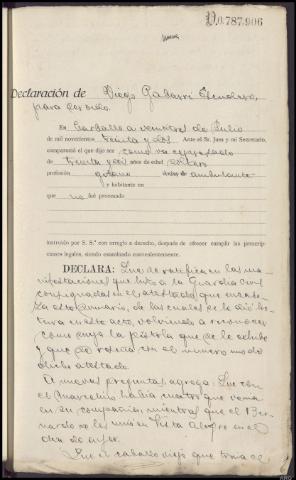 D0.787.906
Declaración de Diego Gabarri Escudero,
para
En Carballo a veintitres de Julio
de mil novecientos treinta y dos Ante el Sr. Juez y mi Secretario,
compareció el que dijo ser como va expresado
de treinta y dos años de edad soltero
profesión gitano ambulante
y habitante en
que no fué procesado
instruído por S. S.ª con arreglo a derecho, después de ofrecer cumplir las prescrip-
ciones legales, siendo examinado convenientemente.
DECLARA: Que se ratifica en las ma-
nifestaciones que hizo a la Guardia Civil
consignadas en el atestado que encabe-
za este sumario, de las cuales se le dió lec-
tura en este acto, volviendo a reconocer
como suya la pistola que se le exhibe
y que se reseña con el numero uno de
dicho atestado.
A nuevas preguntas agrega: Que con
el Marcelino había cuatro que venian
en su compañia, mientras que el Ber-
nardo se les unió en Vista Alegre en el
dia de ayer.
Que el caballo dijo que